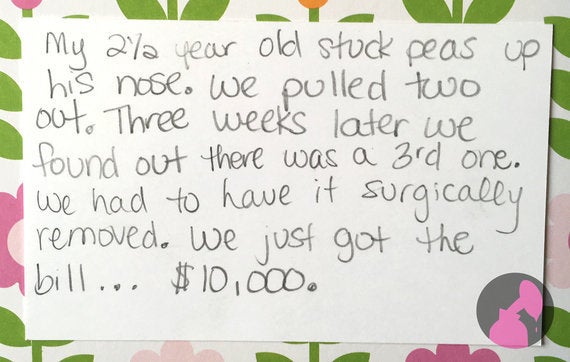 My 2½ year old stuck peas up
his nose. we pulled two
out. Three weeks later we
found out there was a 3rd one.
we had to have it surgically
removed. we just got the
bill... $10,000.